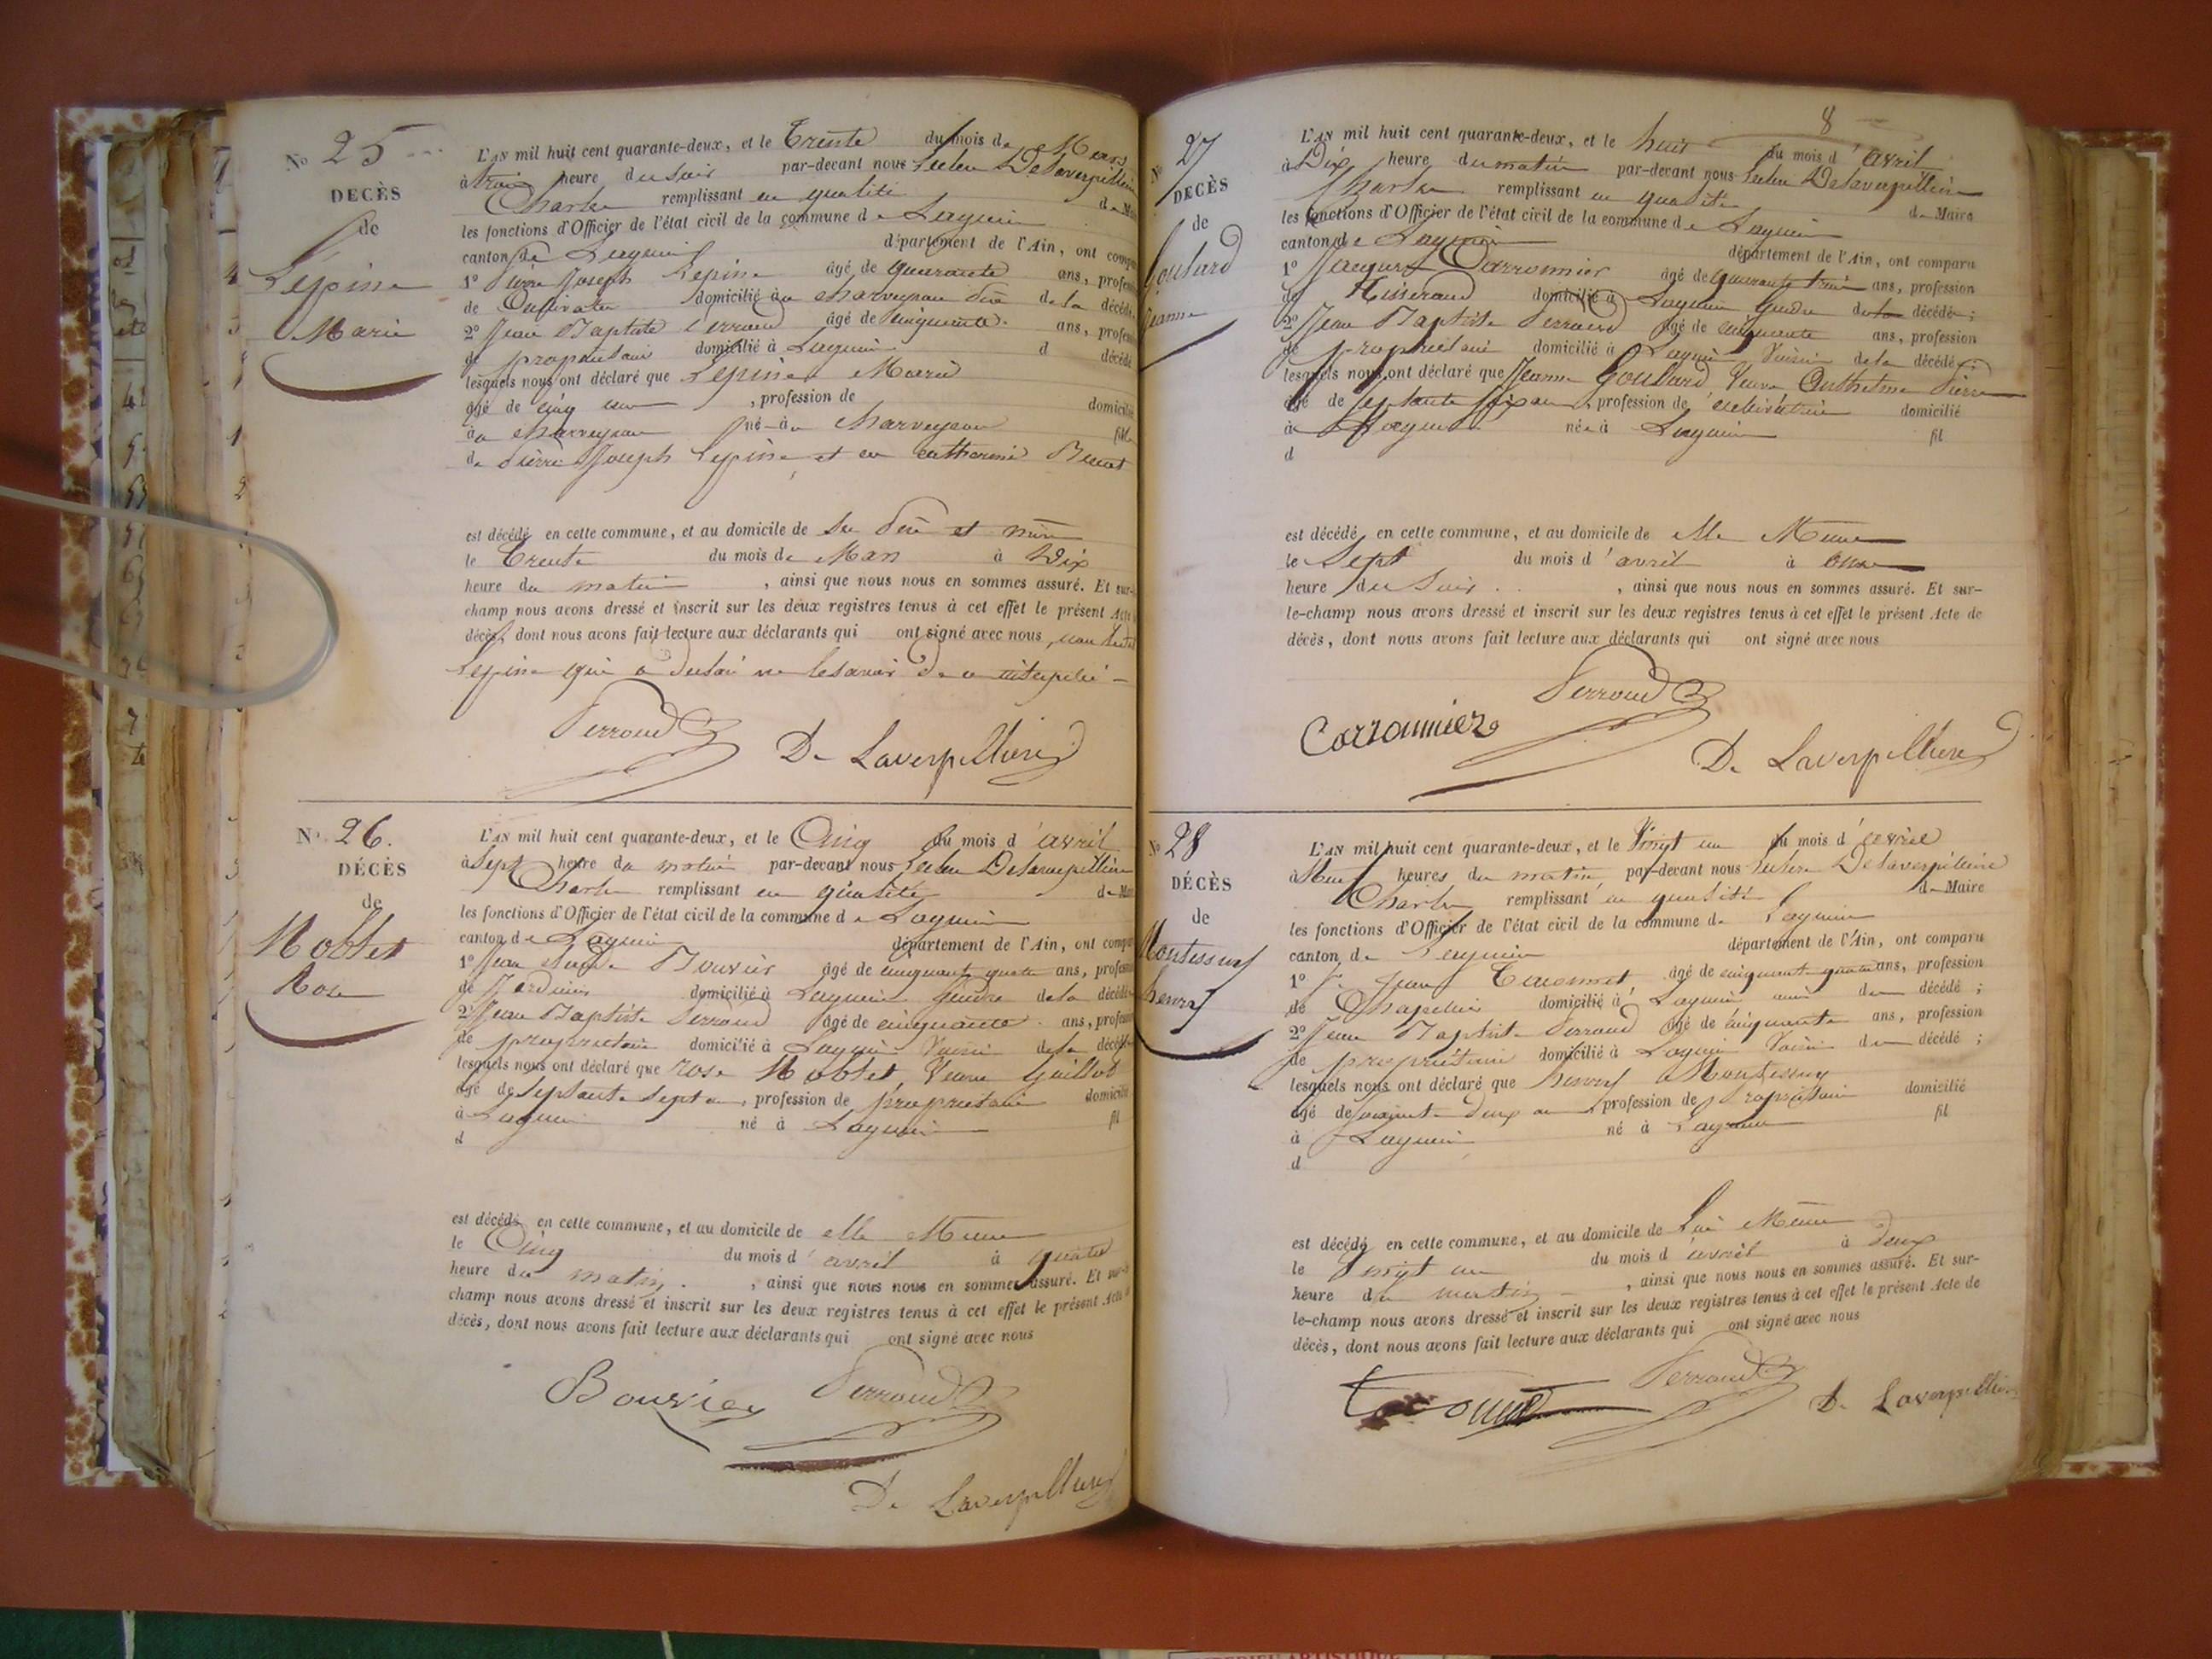 No 25
DECÈS
de
Lépine
Marie
L'AN mil huit cent quarante-deux, et le Trente du mois de Mars
à trois heure du soir par-devant nous Delaverpillière
Charles remplissant en qualité de
les fonctions d'Officier de l'état civil de la commune de Lagnieu
canton de Lagnieu département de l'Ain, ont
1° Pierre Joseph Lepine âgé de quarante ans,
de Cultivateur domicilié à Charveyron père de la décédé
2° Jean Baptiste Perroud âgé de cinquante ans,
de propriétaire domicilié à Lagnieu d décédé
lesquels nous ont déclaré que Lepine Marie
âgé de cinq ans, profession de domicilié
à Charveyron né à Charveyron fille
de Pierre Joseph Lepine et de Catherine
est décédé en cette commune, et au domicile de ses père et mère
le Trente du mois de Mars à Dix
heure du matin, ainsi que nous nous en sommes assuré. Et sur-
champ nous avons dressé et inscrit sur les deux registres tenus à cet effet le présent Acte
décès, dont nous avons fait lecture aux déclarants qui ont signé avec nous, non
Lepine qui a le savoir de
Perroud
De Laverpilliere
N° 26.
DÉCÈS
de
Noblet
Rose
L'AN mil huit cent quarante-deux, et le Cinq du mois d'avril
à Sept heure du matin par-devant nous Delaverpilliere
Charles remplissant en qualité de
les fonctions d'Officier de l'état civil de la commune de Lagnieu
canton de Lagnieu département de l'Ain, ont
1° Jean Bouvier âgé de cinquante quatre ans,
de Jardinier domicilié à Lagnieu gendre de la décédé
2° Jean Baptiste Perroud âgé de cinquante ans,
de propriétaire domicilié à Lagnieu Voisin de la
lesquels nous ont déclaré que rose Noblet, Veuve Guillot
âgé de Septante Sept an, profession de propriétaire
à Lagnieu né à Lagnieu fil
d
est décédé en cette commune, et au domicile de elle Meme
le Cinq du mois d'avril à quatre
heure du matin, ainsi que nous nous en sommes assuré. Et
champ nous avons dressé et inscrit sur les deux registres tenus à cet effet le présent Acte
décès, dont nous avons fait lecture aux déclarants qui ont signé avec nous
Bouvier Perroud
De Laverpilliere
8
No 27
DECÈS
de
Goulard
Jeanne
L'AN mil huit cent quarante-deux, et le huit du mois d'avril
à Dix heure du matin par-devant nous Delaverpilliere
Charles remplissant en qualité de Maire
les fonctions d'Officier de l'état civil de la commune de Lagnieu
canton de Lagnieu département de l'Ain, ont comparu
1° Jacques Carronnier âgé de quarante trois ans, profession
de Tisserand domicilié à Lagnieu Gendre de la décédé;
2° Jean Baptiste Perroud âgé de cinquante ans, profession
de propriétaire domicilié à Lagnieu Voisin de la décédé;
lesquels nous ont déclaré que Jeanne Goulard Veuve Anthelme Pierre
âgé de septante six an, profession de cultivatrice domicilié
à Lagnieu née à Lagnieu fil
d
est décédé en cette commune, et au domicile de elle Meme
le Sept du mois d'avril à onze
heure du Soir, ainsi que nous nous en sommes assuré. Et sur-
le-champ nous avons dressé et inscrit sur les deux registres tenus à cet effet le présent Acte de
décès, dont nous avons fait lecture aux déclarants qui ont signé avec nous
Perroud
Carronnier
De Laverpilliere
No 28
DÉCÈS
de
Montessuy
henry
L'AN mil huit cent quarante-deux, et le Vingt un du mois d'avril
à Neuf heures du matin par-devant nous Delaverpilliere
Charles remplissant en qualité de Maire
les fonctions d'Officier de l'état civil de la commune de Lagnieu
canton de Lagnieu département de l'Ain, ont comparu
1° Jean âgé de cinquante quatre ans, profession
de Chapelier domicilié à Lagnieu ami du décédé;
2° Jean Baptiste Perroud âgé de cinquante ans, profession
de propriétaire domicilié à Lagnieu Voisin du décédé;
lesquels nous ont déclaré que henry Montessuy
âgé de soixante deux an profession de Propriétaire domicilié
à Lagnieu né à Lagnieu fil
d
est décédé en cette commune, et au domicile de Lui Meme
le Vingt un du mois d'avril à deux
heure du matin, ainsi que nous nous en sommes assuré. Et sur-
le-champ nous avons dressé et inscrit sur les deux registres tenus à cet effet le présent Acte de
décès, dont nous avons fait lecture aux déclarants qui ont signé avec nous
Perroud
De Laverpilliere